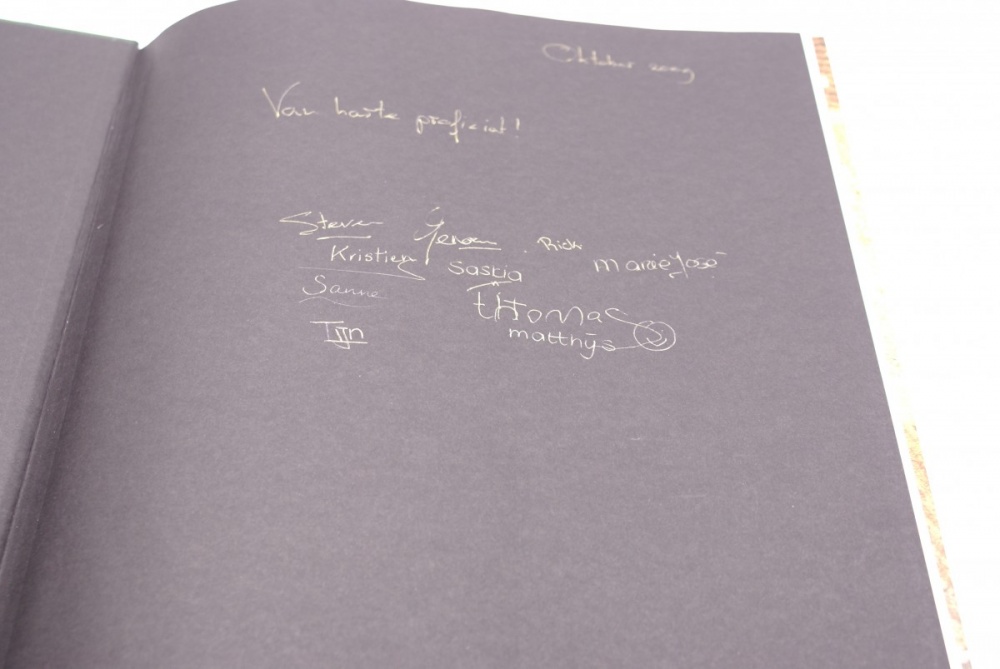 Oktober 2009
Van harte proficiat!
Steven Jeroen Rick Marie-José
Kristien Saskia
Sanne Thomas
Tijn matthijs